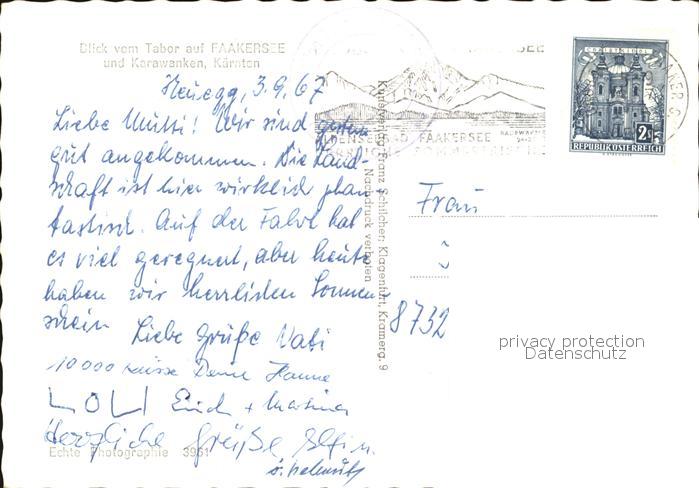 Blick vom Tabor auf FAAKERSEE
und Karawanken, Kärnten
Neuegg, 3.9.67
Liebe Mutti! Wir sind gestern
gut angekommen. Die Land-
schaft ist hier wirklich phan-
tastisch. Auf der Fahrt hat
es viel geregnet, aber heute
haben wir herrlichen Sonnen-
schein. Liebe Grüße Vati
10 000 Küsse Deine Hanne
LOLI Erich + Martina
Herzliche Grüße Elfi u.
Helmut
Echte Photographie 3951
Kunstverlag Franz Schilcher, Klagenfurt, Kramerg. 9
Nachdruck verboten
FAAKERSEE
CHRISTKINDL
2 S
REPUBLIK ÖSTERREICH
Frau
8732
privacy protection
Datenschutz